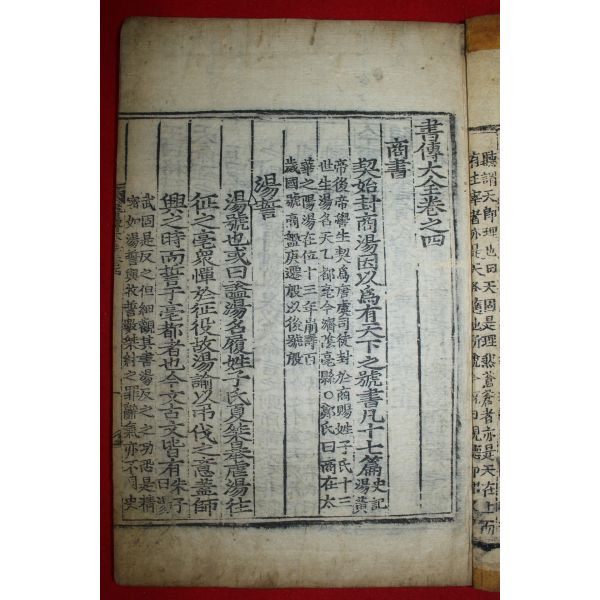 書傳大全卷之四
商書
契始封商湯因以爲有天下之號書凡十七篇
史記湯黃
帝後帝嚳生契爲唐虞司徒封於商賜姓子氏十三
世生湯名天乙都亳今濟陰亳縣○鄭氏曰商在太
華之陽湯在位十三年崩壽百
歲國號商盤庚遷殷以後號殷
湯誓
湯號也或曰諡湯名履姓子氏夏桀暴虐湯往
征之亳衆憚於征役故湯諭以弔伐之意蓋師
興之時而誓于亳都者也今文古文皆有
朱子曰湯
武固是反之但細觀其書湯反之之功恐是精
密如湯誓與牧誓數桀紂之罪辭氣亦不同史
聽謂天卽理也曰天固是理然蒼蒼者亦是天在上而
有主宰者亦是天各適